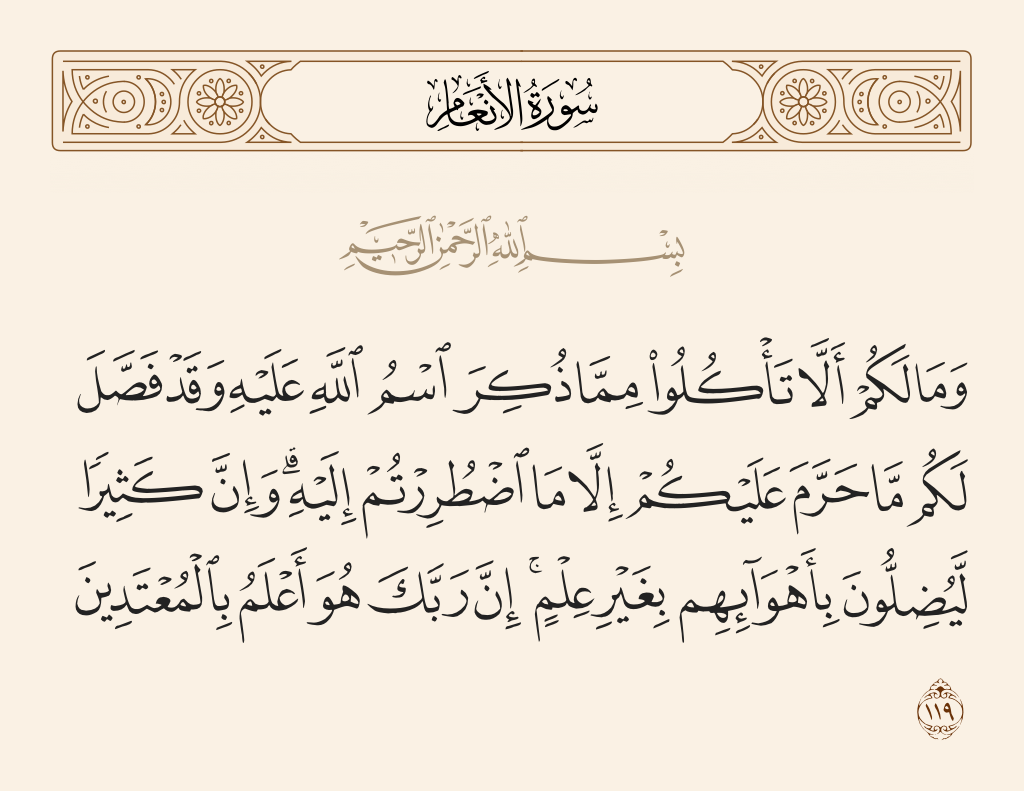 سُورَةُ الأَنْعَامِ
بِسْمِ ٱللَّهِ ٱلرَّحْمَٰنِ ٱلرَّحِيمِ
وَمَا لَكُمْ أَلَّا تَأْكُلُوا۟ مِمَّا ذُكِرَ ٱسْمُ ٱللَّهِ عَلَيْهِ وَقَدْ فَصَّلَ
لَكُم مَّا حَرَّمَ عَلَيْكُمْ إِلَّا مَا ٱضْطُرِرْتُمْ إِلَيْهِ ۗ وَإِنَّ كَثِيرًا
لَّيُضِلُّونَ بِأَهْوَآئِهِم بِغَيْرِ عِلْمٍ ۚ إِنَّ رَبَّكَ هُوَ أَعْلَمُ بِٱلْمُعْتَدِينَ
١١٩